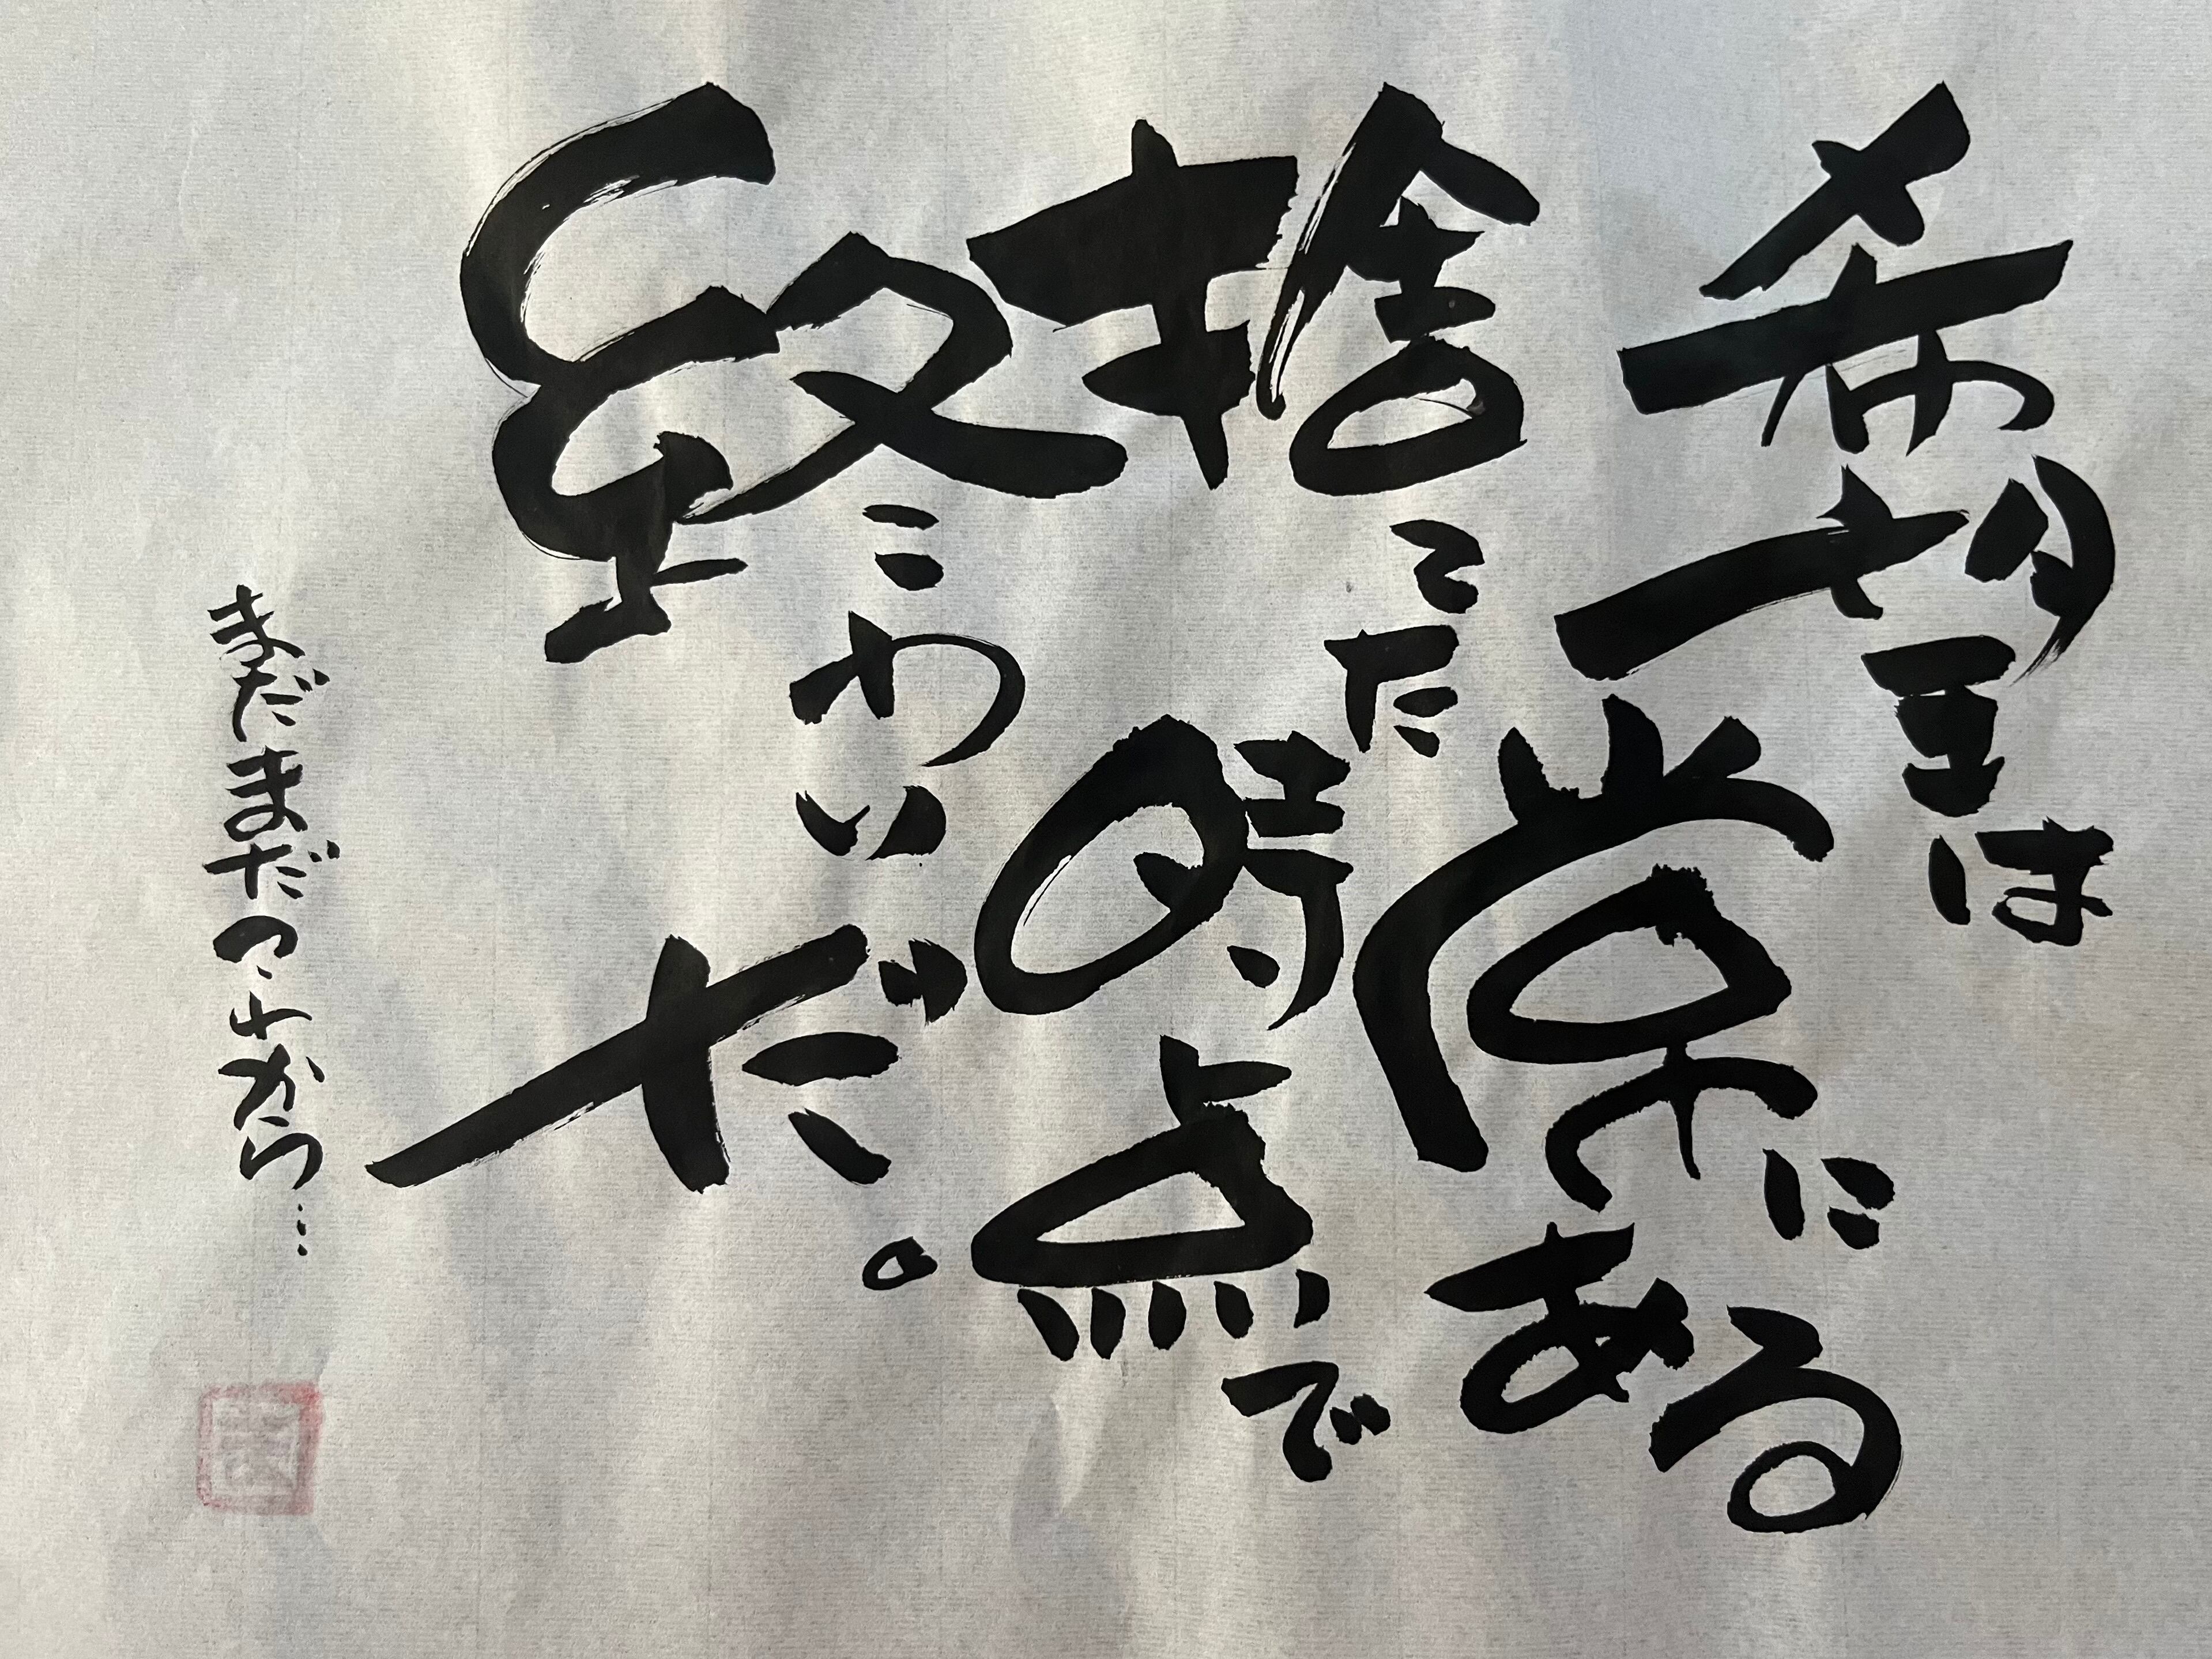 希望は
常にある
捨てた
時点で
終わりだ。
まだまだこれから…